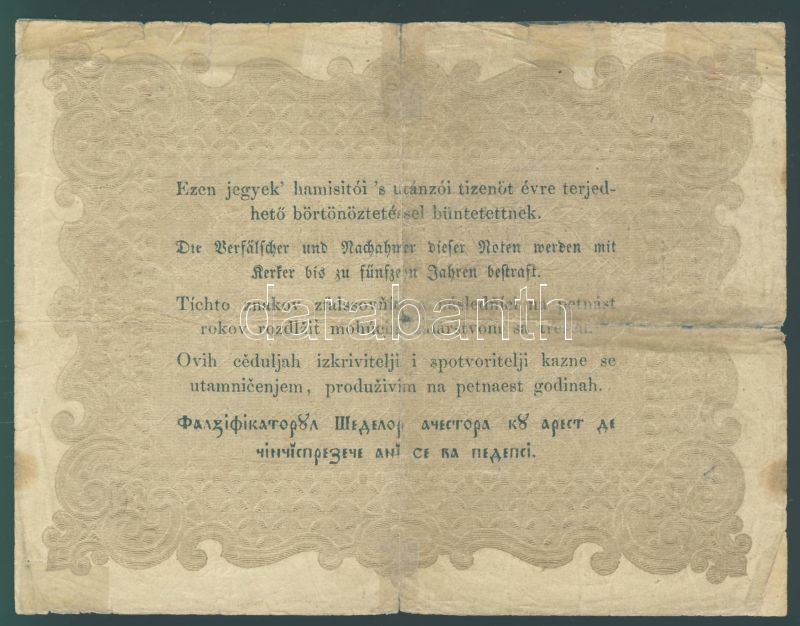 Ezen jegyek' hamisitói 's utánzói tizenöt évre terjed-
hető börtönöztetéssel büntetettnek.
Die Verfälscher und Nachahmer dieser Noten werden mit
Kerker bis zu fünfzehn Jahren bestraft.
Tíchto znakov na petnást
rokov rozdlžit
Ovih cěduljah izkrivitelji i spotvoritelji kazne se
utamničenjem, produživim na petnaest godinah.
Фалзіфікаторꙋл Шеделор ачестора кꙋ арест де
чінчĭспрезече анĭ се ва педепсі.
darabanth